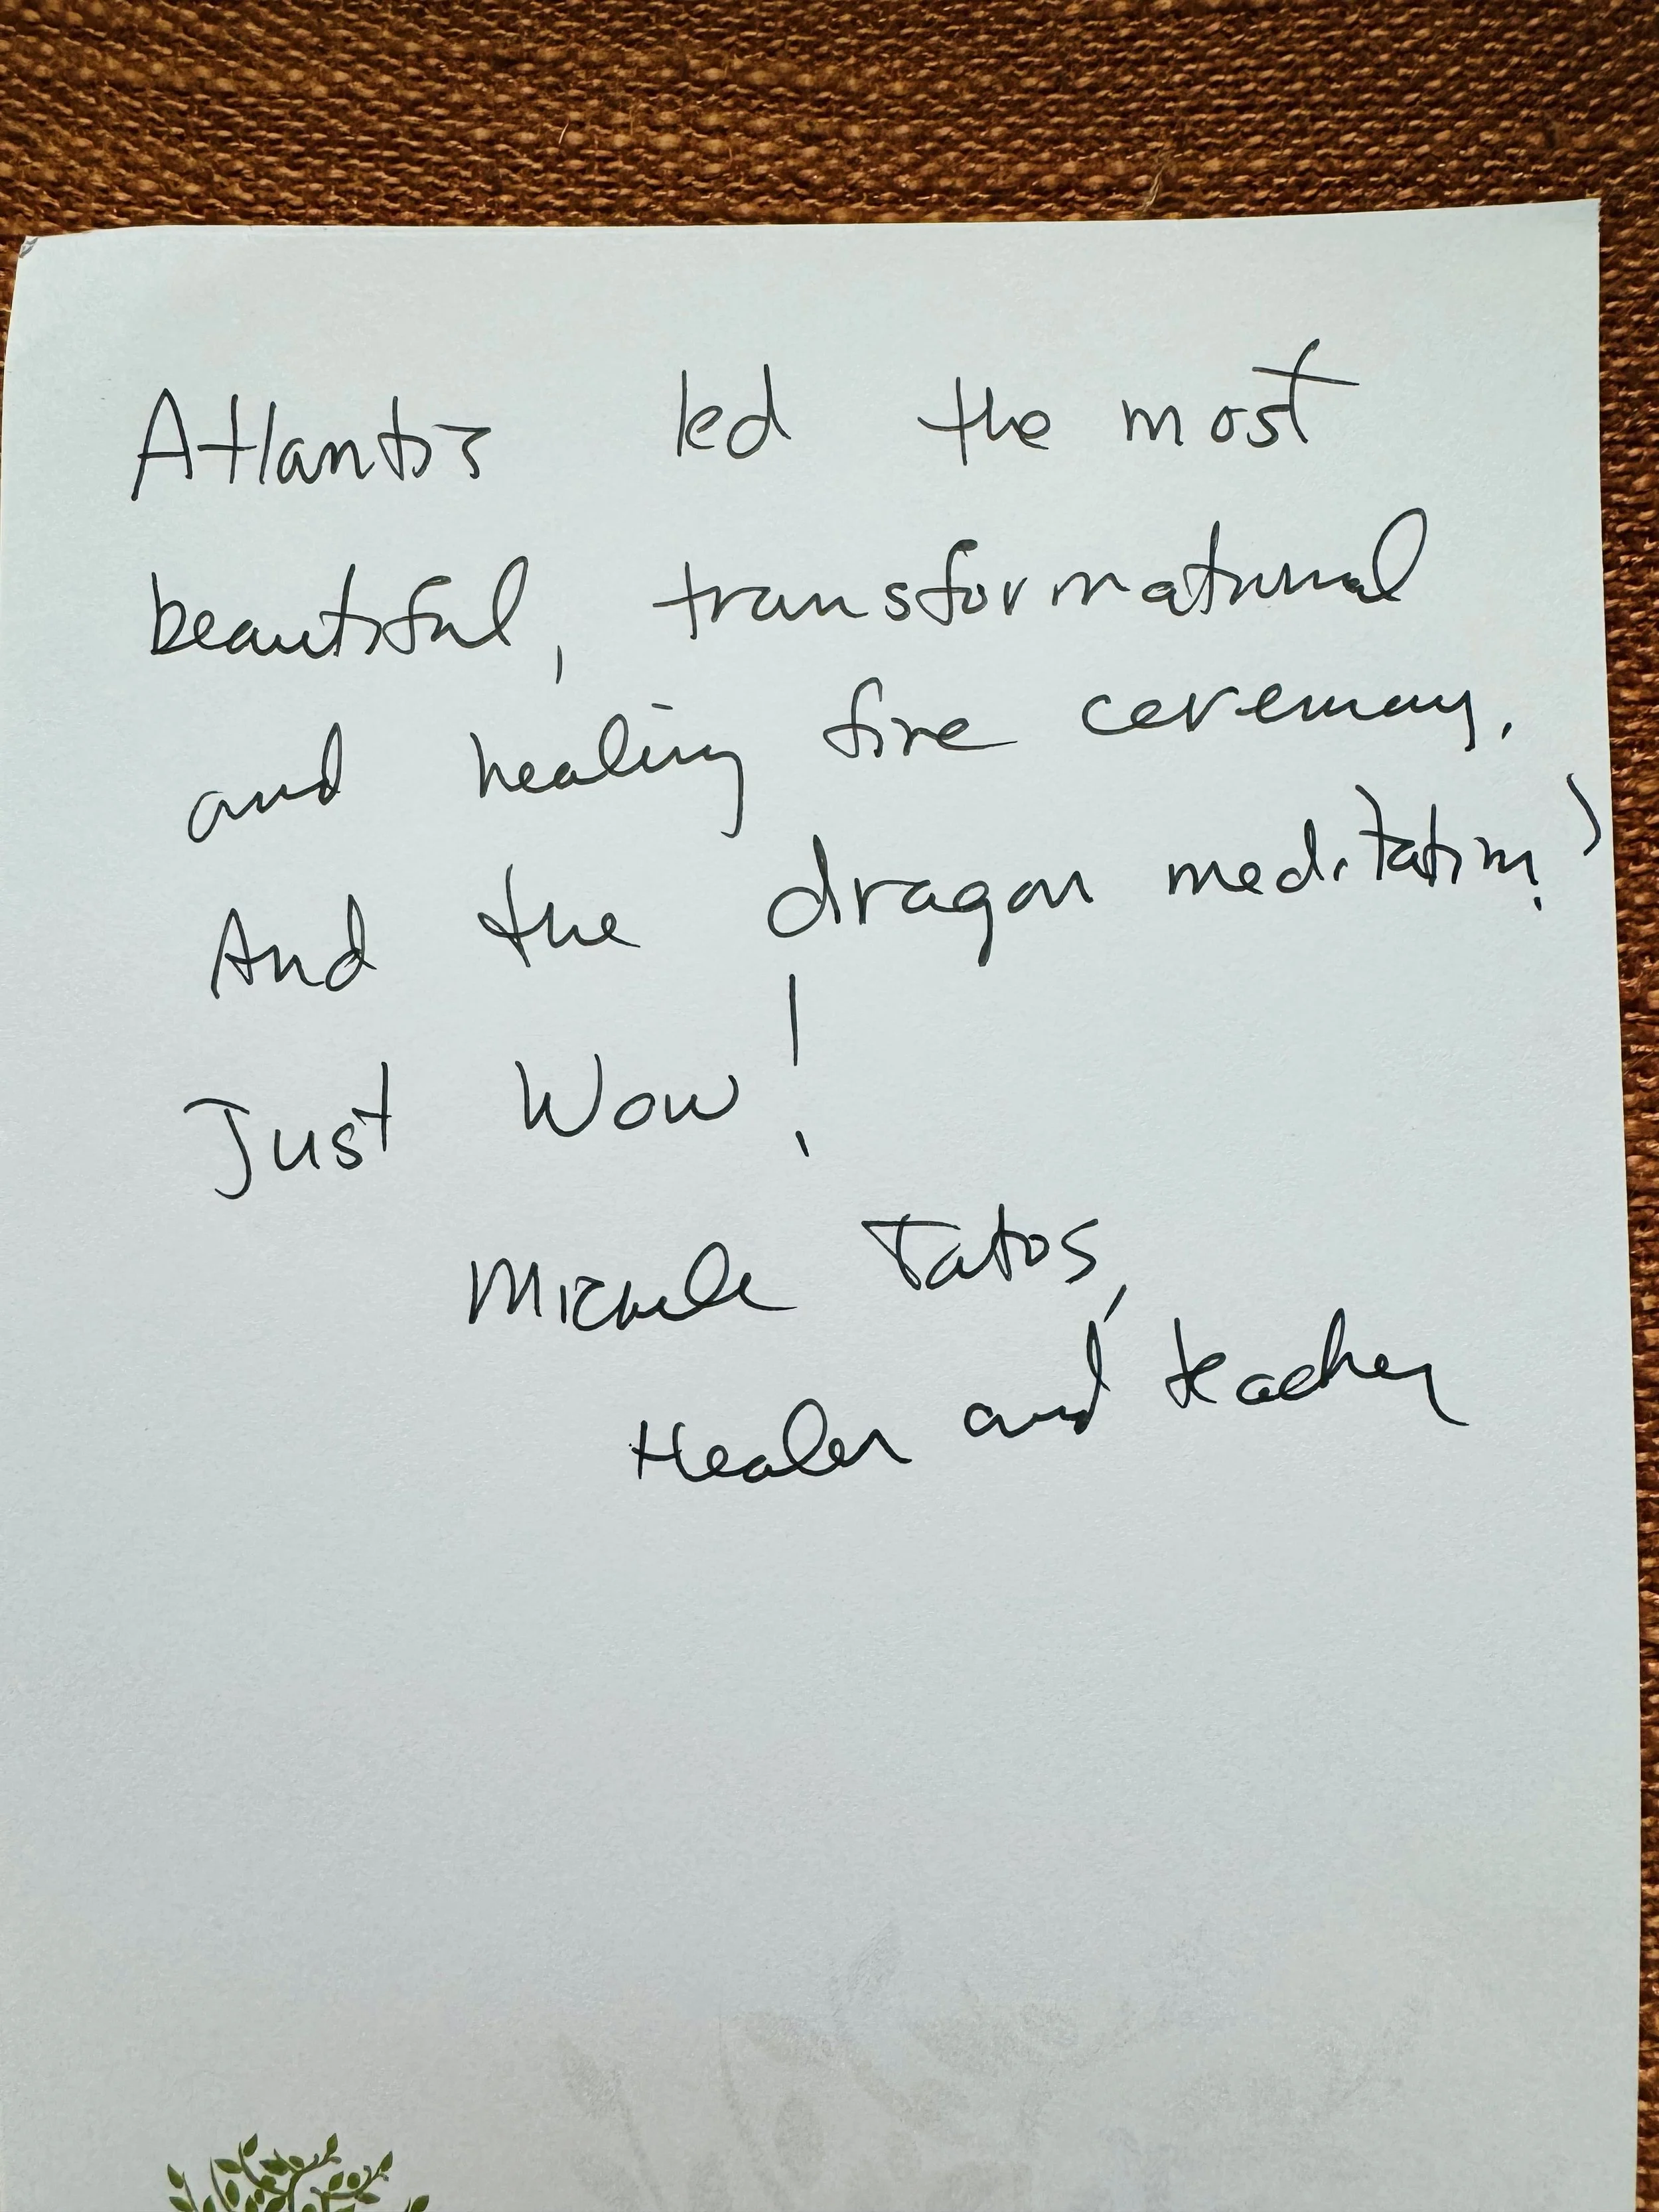 Atlantis led the most
beautiful, transformational
and healing fire ceremony.
And the dragon meditation?
Just Wow!
Michele Tatos,
Healer and teacher